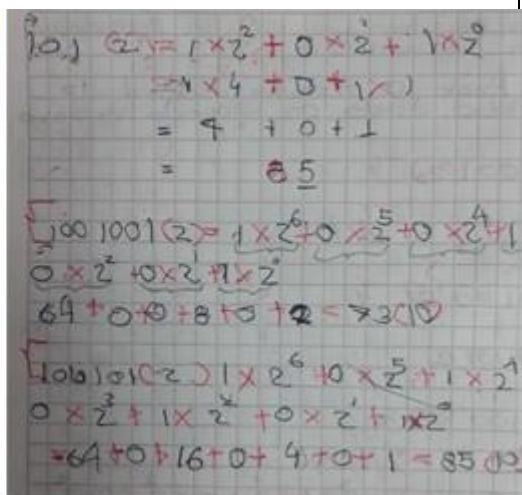 101 (2) = 1 × 2² + 0 × 2¹ + 1 × 2⁰
= 1 × 4 + 0 + 1 × 1
= 4 + 0 + 1
= 5
1001001(2) = 1 × 2⁶ + 0 × 2⁵ + 0 × 2⁴ + 1
0 × 2² + 0 × 2¹ + 1 × 2⁰
64 + 0 + 0 + 8 + 0 + = 73(10)
1010101(2) 1 × 2⁶ + 0 × 2⁵ + 1 × 2⁴
0 × 2³ + 1 × 2² + 0 × 2¹ + 1 × 2⁰
= 64 + 0 + 16 + 0 + 4 + 0 + 1 = 85 (10